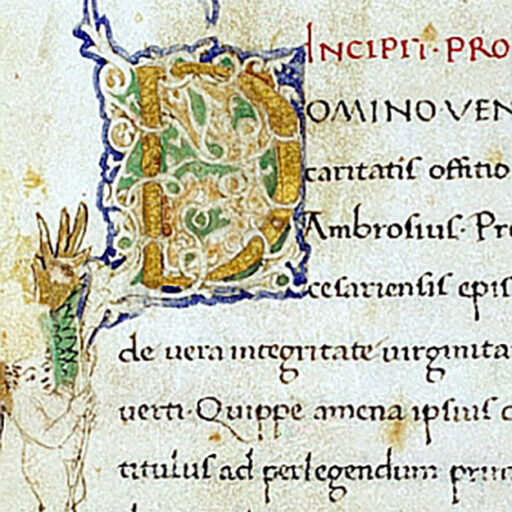 INCIPIT·PRO
DOMINO VEN
caritatis offitio
Ambrosius· Pre
cesariensis epis
de uera integritate uirginita
uerti· Quippe amena ipsius
titulus ad perlegendum